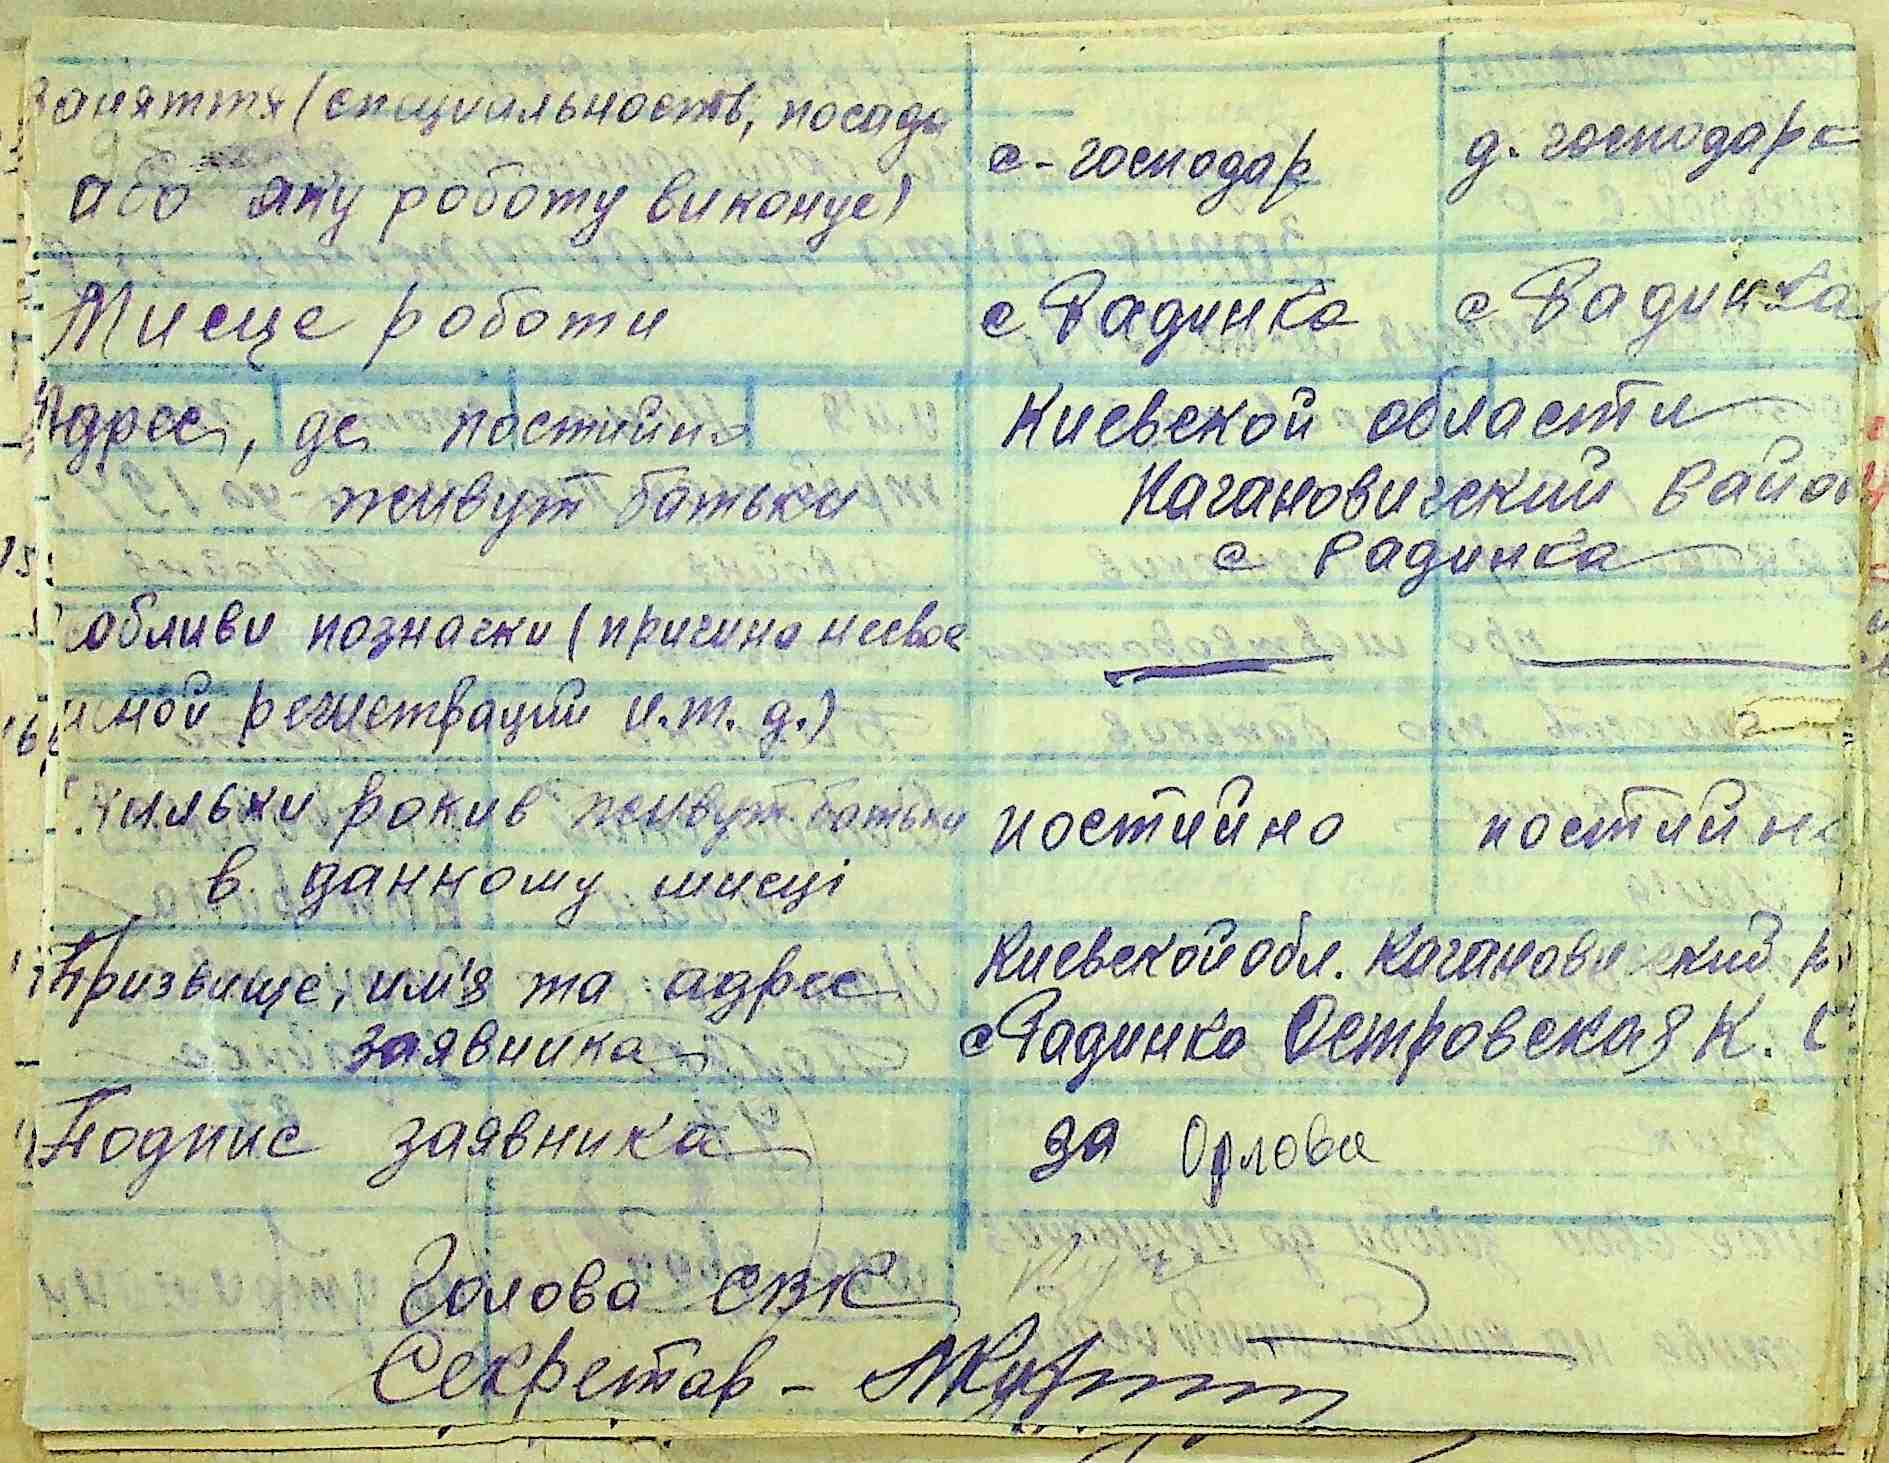 Заняття (специальность, посада
с-господар
д. господарк
або яку роботу виконує)
Мисце роботи
с Радинка
с Радинка
Адрес, де постийно
живут батьки
Киевской области
Кагановичский район
с Радинка
собливи позначки (причина несвоє
чсной регистрации и.т.д.)
Скильки рокив живут батьки
в данному мисці
постийно
постийно
Призвище, им'я та адрес
заявника
Киевской обл. Кагановичский р
с Радинка Островская К.
Подпис заявника
за Орлова
Голова СВК
Секретар -